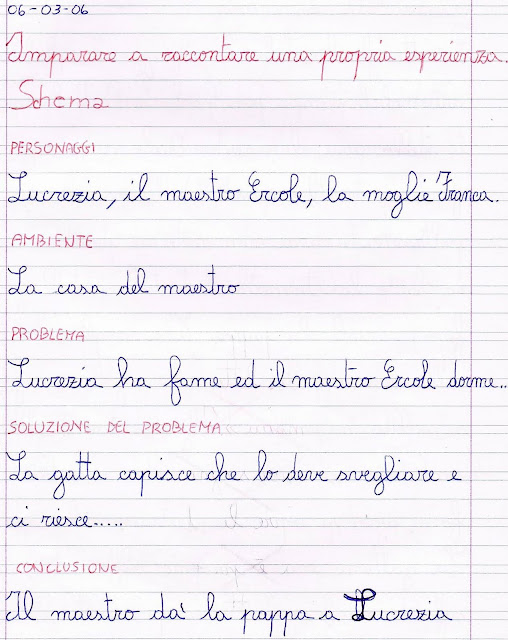 06-03-06
Imparare a raccontare una propria esperienza.
Schema
PERSONAGGI
Lucrezia, il maestro Ercole, la moglie Franca.
AMBIENTE
La casa del maestro
PROBLEMA
Lucrezia ha fame ed il maestro Ercole dorme..
SOLUZIONE DEL PROBLEMA
La gatta capisce che lo deve svegliare e
ci riesce.....
CONCLUSIONE
Il maestro da' la pappa a Lucrezia